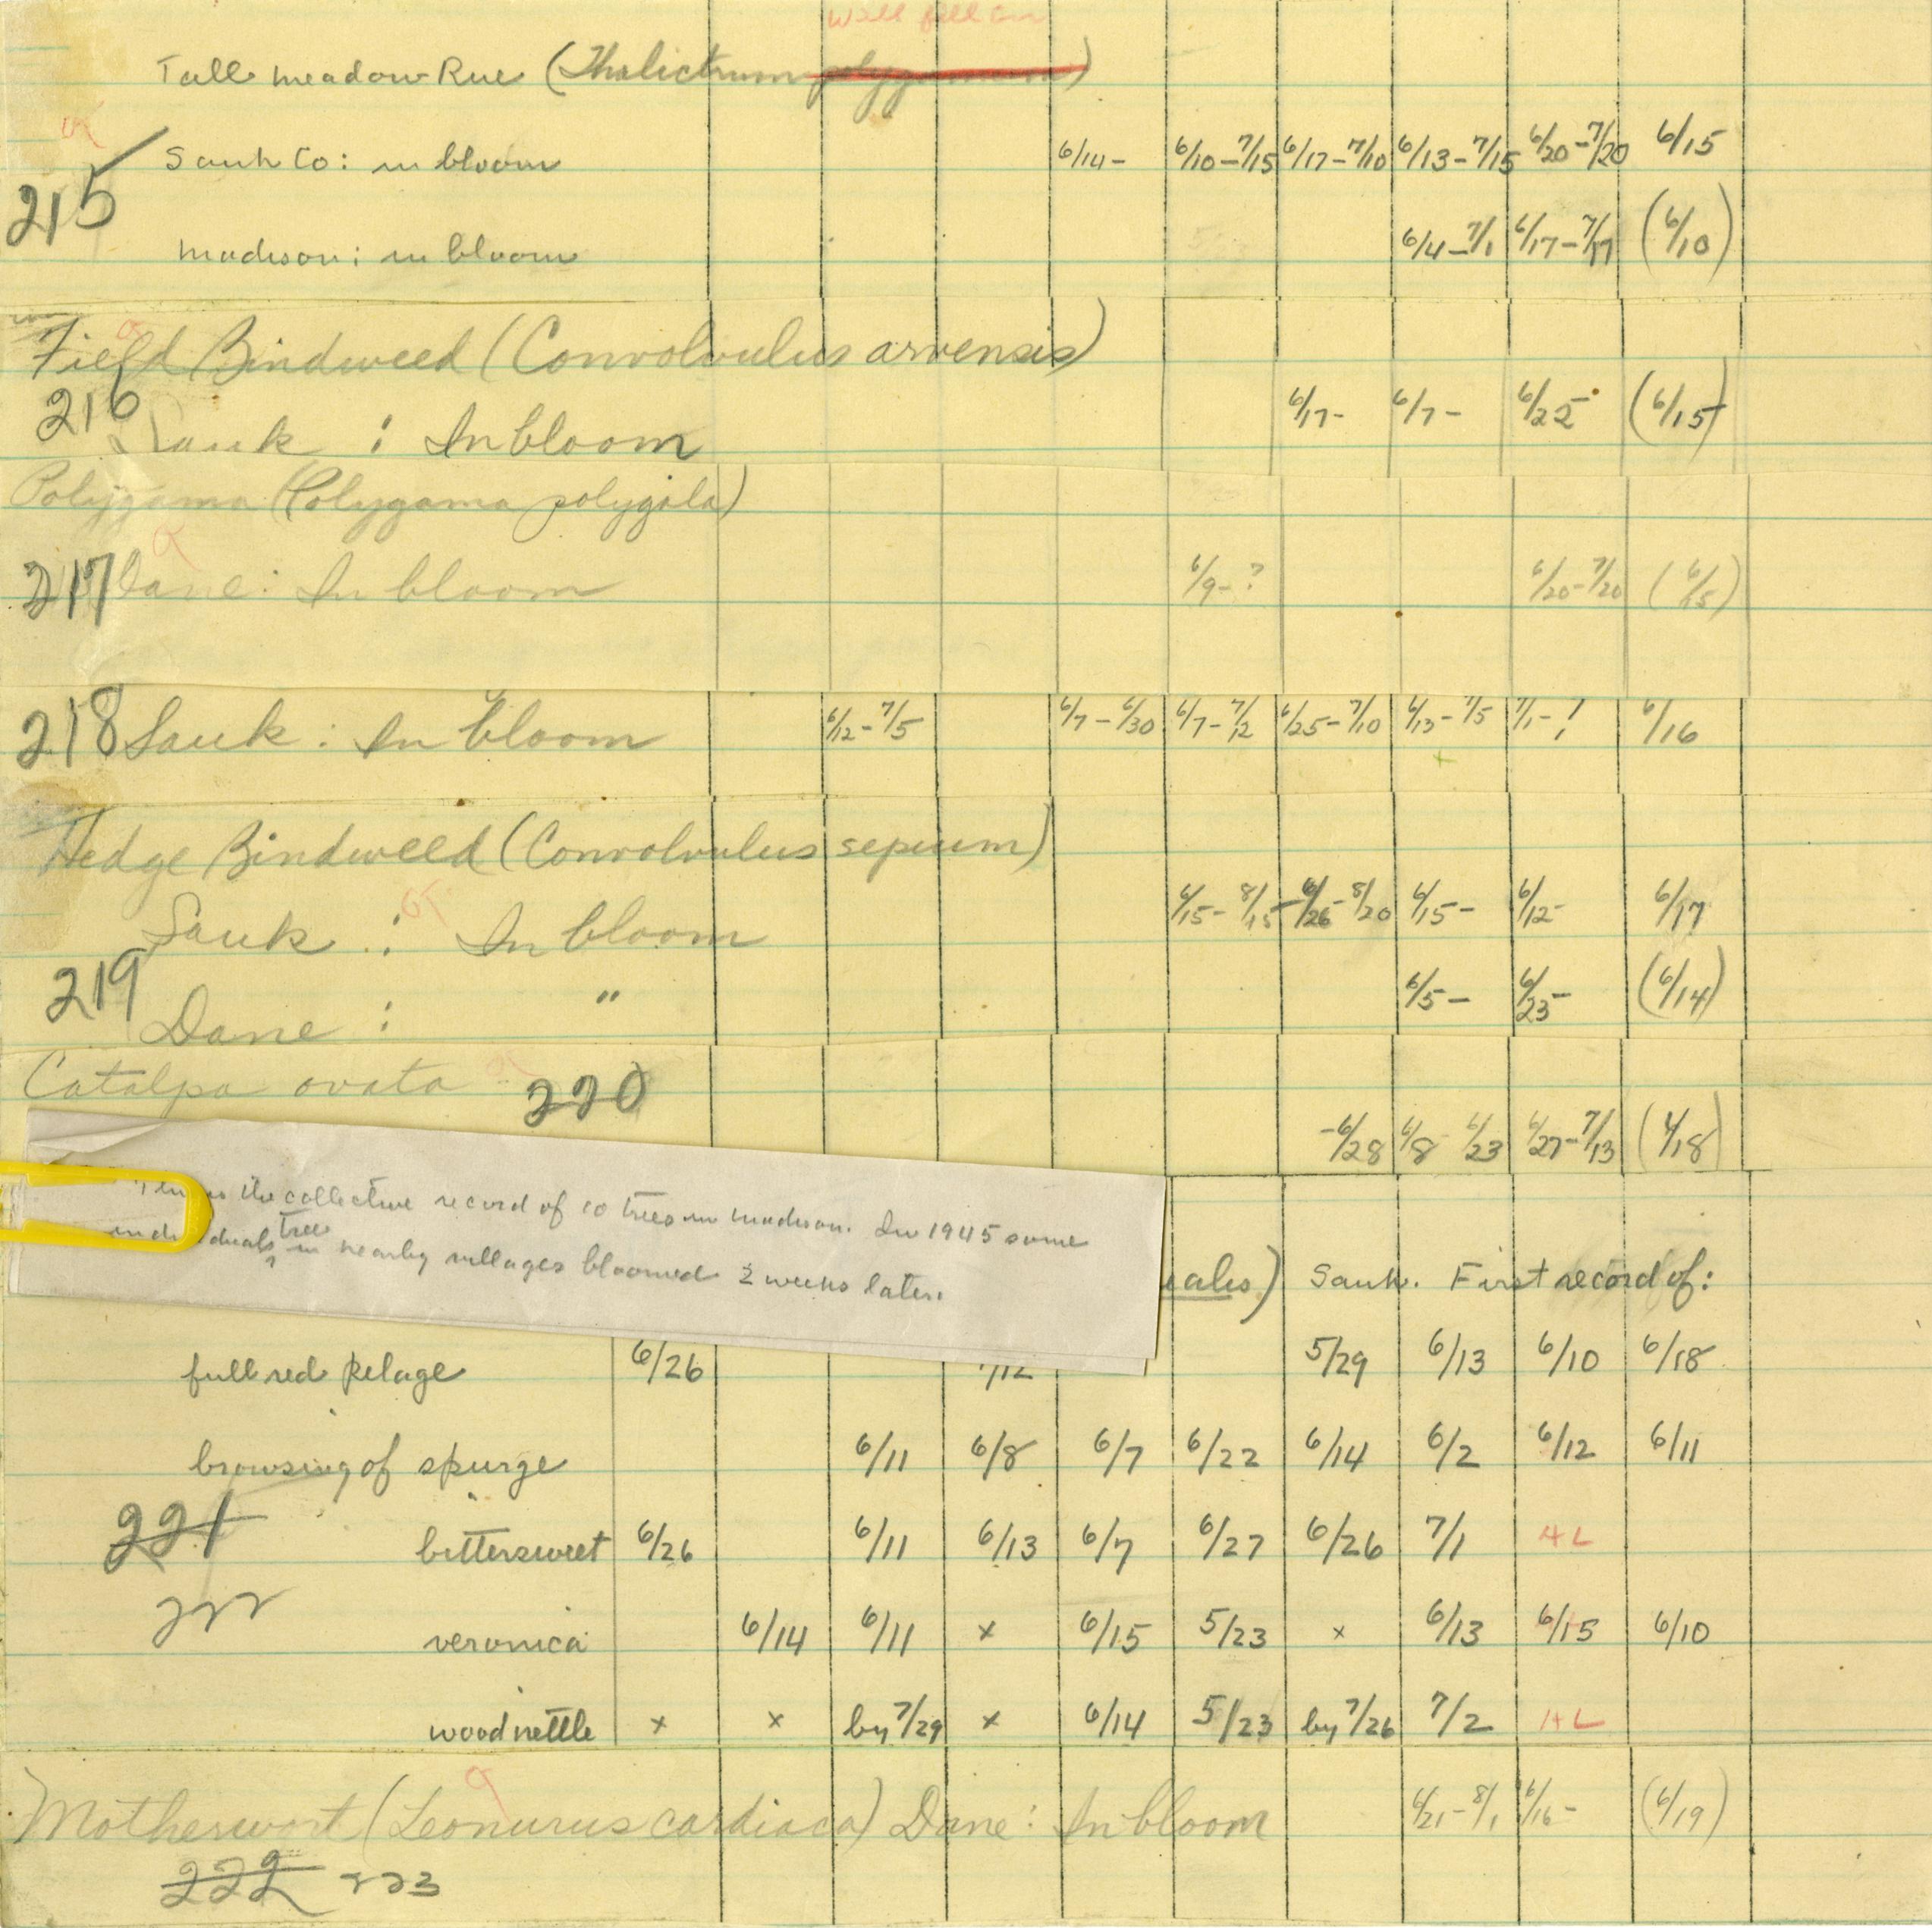 will fill in
Tall meadow Rue (Thalictrum polygamum)
ok
Sauk Co: in bloom 6/14- 6/10-7/15 6/17-7/10 6/13-7/15 6/20-7/20 6/15
215
Madison: in bloom 6/4-7/1 6/17-7/17 (6/10)
Field Bindweed (Convolvulus arvensis)
216
Sauk : In bloom 6/17- 6/7- 6/22- (6/15)
Polygama (Polygama polygala)
217 Dane: In bloom 6/9-? 6/20-7/20 (6/15)
218 Sauk: In bloom 6/12-7/5 6/7-6/30 6/7-7/2 6/25-7/10 6/13-7/5 7/1-! 6/16
Hedge Bindweed (Convolvulus sepium)
Sauk : In bloom 6/15-8/15 6/26-8/20 6/15- 6/12- 6/17
219
Dane : " 6/5- 6/23- (6/14)
Catalpa ovata 220
-6/28 6/8 6/23 6/27-7/13 (6/18)
the collective record of 10 trees in Madison. In 1945 some
individuals trees in nearby villages bloomed 2 weeks later.
eales) Sauk. First record of:
full red pelage 6/26 7/12 5/29 6/13 6/10 6/18
browsing of spurge 6/11 6/8 6/7 6/22 6/14 6/2 6/12 6/11
221
bittersweet 6/26 6/11 6/13 6/7 6/27 6/26 7/1 HL
222
veronica 6/14 6/11 x 6/15 5/23 x 6/13 6/15 6/10
wood nettle x x by 7/29 x 6/14 5/23 by 7/26 7/2 HL
Motherwort (Leonurus cardiaca) Dane: In bloom 6/21-8/1 6/16- (6/19)
222 223